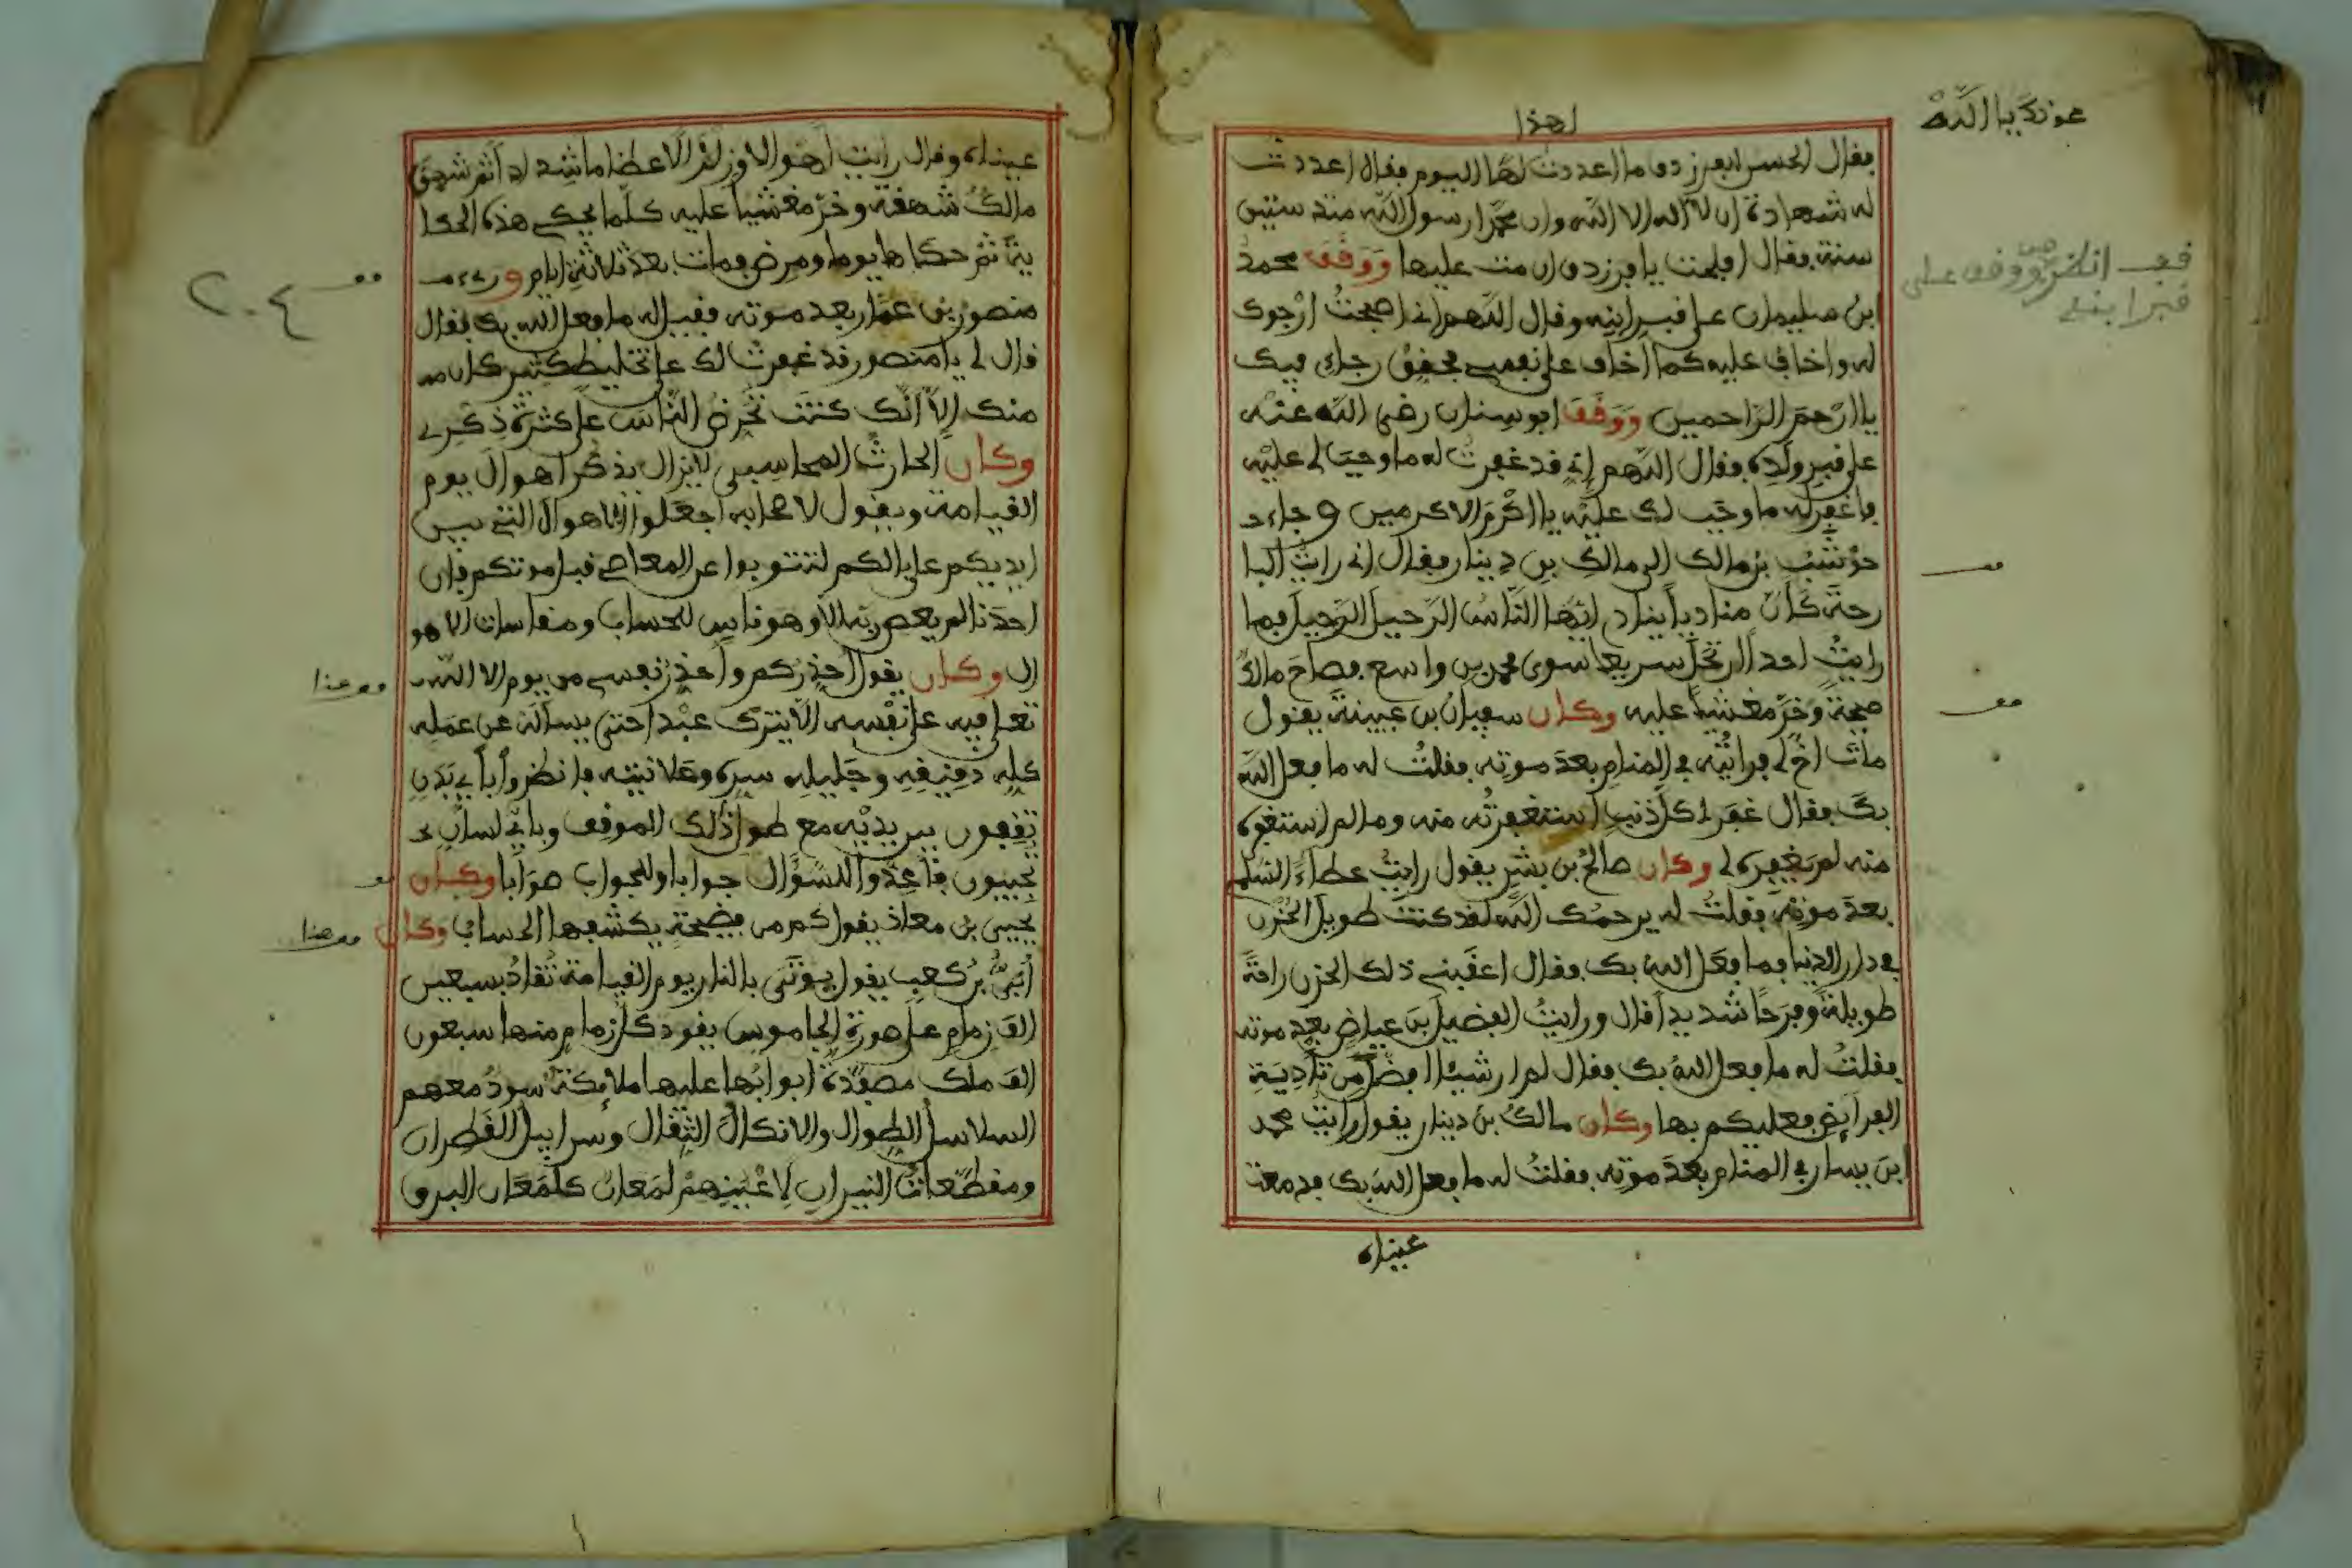 عونك يا الله
لهذا
فقال الحسن للفرزدق ما اعددت لهذا اليوم فقال اعددت
له شهادة ان لا اله الا الله وان محمدا رسول الله منذ ستين
سنة فقال افلحت يا فرزدق ان مت عليها ووقف محمد
ابن سليمان على قبر ابنه وقال اللهم اني اصبحت ارجوك
له واخاف عليه كما اخاف على نفسي فحقق رجاءي فيك
يا ارحم الراحمين ووقف ابو سنان رضي الله عنه
على قبر ولده فقال اللهم اني قد غفرت له ما وجب لي عليه
فاغفر له ما وجب لك عليه يا اكرم الاكرمين وجاء
حوشب بن مالك الى مالك بن دينار فقال اني رايت البا
رحة كان مناديا يناد ايها الناس الرحيل الرحيل فما
رايت احدا ارتحل سريعا سوى محمد بن واسع فصاح مالك
صيحة وخر مغشيا عليه وكان سفيان بن عيينة يقول
مات اخ لي فرأيته في المنام بعد موته فقلت له ما فعل الله
بك فقال غفر لي كل ذنب استغفرته منه وما لم استغفره
منه لم يغفره لي وكان صالح بن بشر يقول رايت عطاء السلمي
بعد موته فقلت له يرحمك الله لقد كنت طويل الحزن
في دار الدنيا فما فعل الله بك فقال اعقبني ذلك الحزن راحة
طويلة وفرحا شديدا قال ورايت الفضيل بن عياض بعد موته
فقلت له ما فعل الله بك فقال لم ار شيئا افضل من تأدية
الفرائض فعليكم بها وكان مالك بن دينار يقول رايت محمد
ابن يسار في المنام بعد موته فقلت له ما فعل الله بك فدمعت
عيناه
قف انظر ووقف على
قبر ابنه
قف
قف
عيناه وقال رايت اهوالا وزلازلا عظاما شداد اثم شهق
مالك شهقة وخر مغشيا عليه كلما يحكي هذه الحكا
ية ثم حكاها يوما ومرض ومات بعد ثلاثة ايام و
منصور بن عمار بعد موته فقيل له ما فعل الله بك فقال
قال لي يا منصور قد غفرت لك على تخليط كثير كان
منك الا انك كنت تحرض الناس على كثرة ذكري
وكان الحارث المحاسبي لا يزال يذكر اهوال يوم
القيامة ويقول لاصحابه اجعلوا الاهوال التي بين
ايديكم على بالكم لتتوبوا عن المعاصي قبل موتكم فان
احدنا لم يعص ربه الا وهو ناس للحساب ومقاسات الاهو
ال وكان يقول احذركم واحذر نفسي من يوم الا الله
تعلى فيه على نفسه الا يترك عبدا حتى يسأله عن عمله
كله دقيقه وجليله سره وعلانيته فانظروا بأي بدن
تقفون بين يديه مع طول ذلك الموقف وباي لسان
تجيبون فأعدوا للسؤال جوابا وللجواب صوابا وكان
يحيى بن معاذ يقول كم من فضيحة يكشفها الحساب وكان
أبي بن كعب يقول يوتى بالنار يوم القيامة تقاد بسبعين
الف زمام على صورة الجاموس يقود كل زمام منها سبعون
الف ملك مصفدة ابوابها عليها ملائكة سود معهم
السلاسل الطوال والانكال الثقال وسرابيل القطران
ومقطعات النيران لأعينهم لمعان كلمعان البرق
قف
٢٠٤
قف هذا
قف
قف هذا